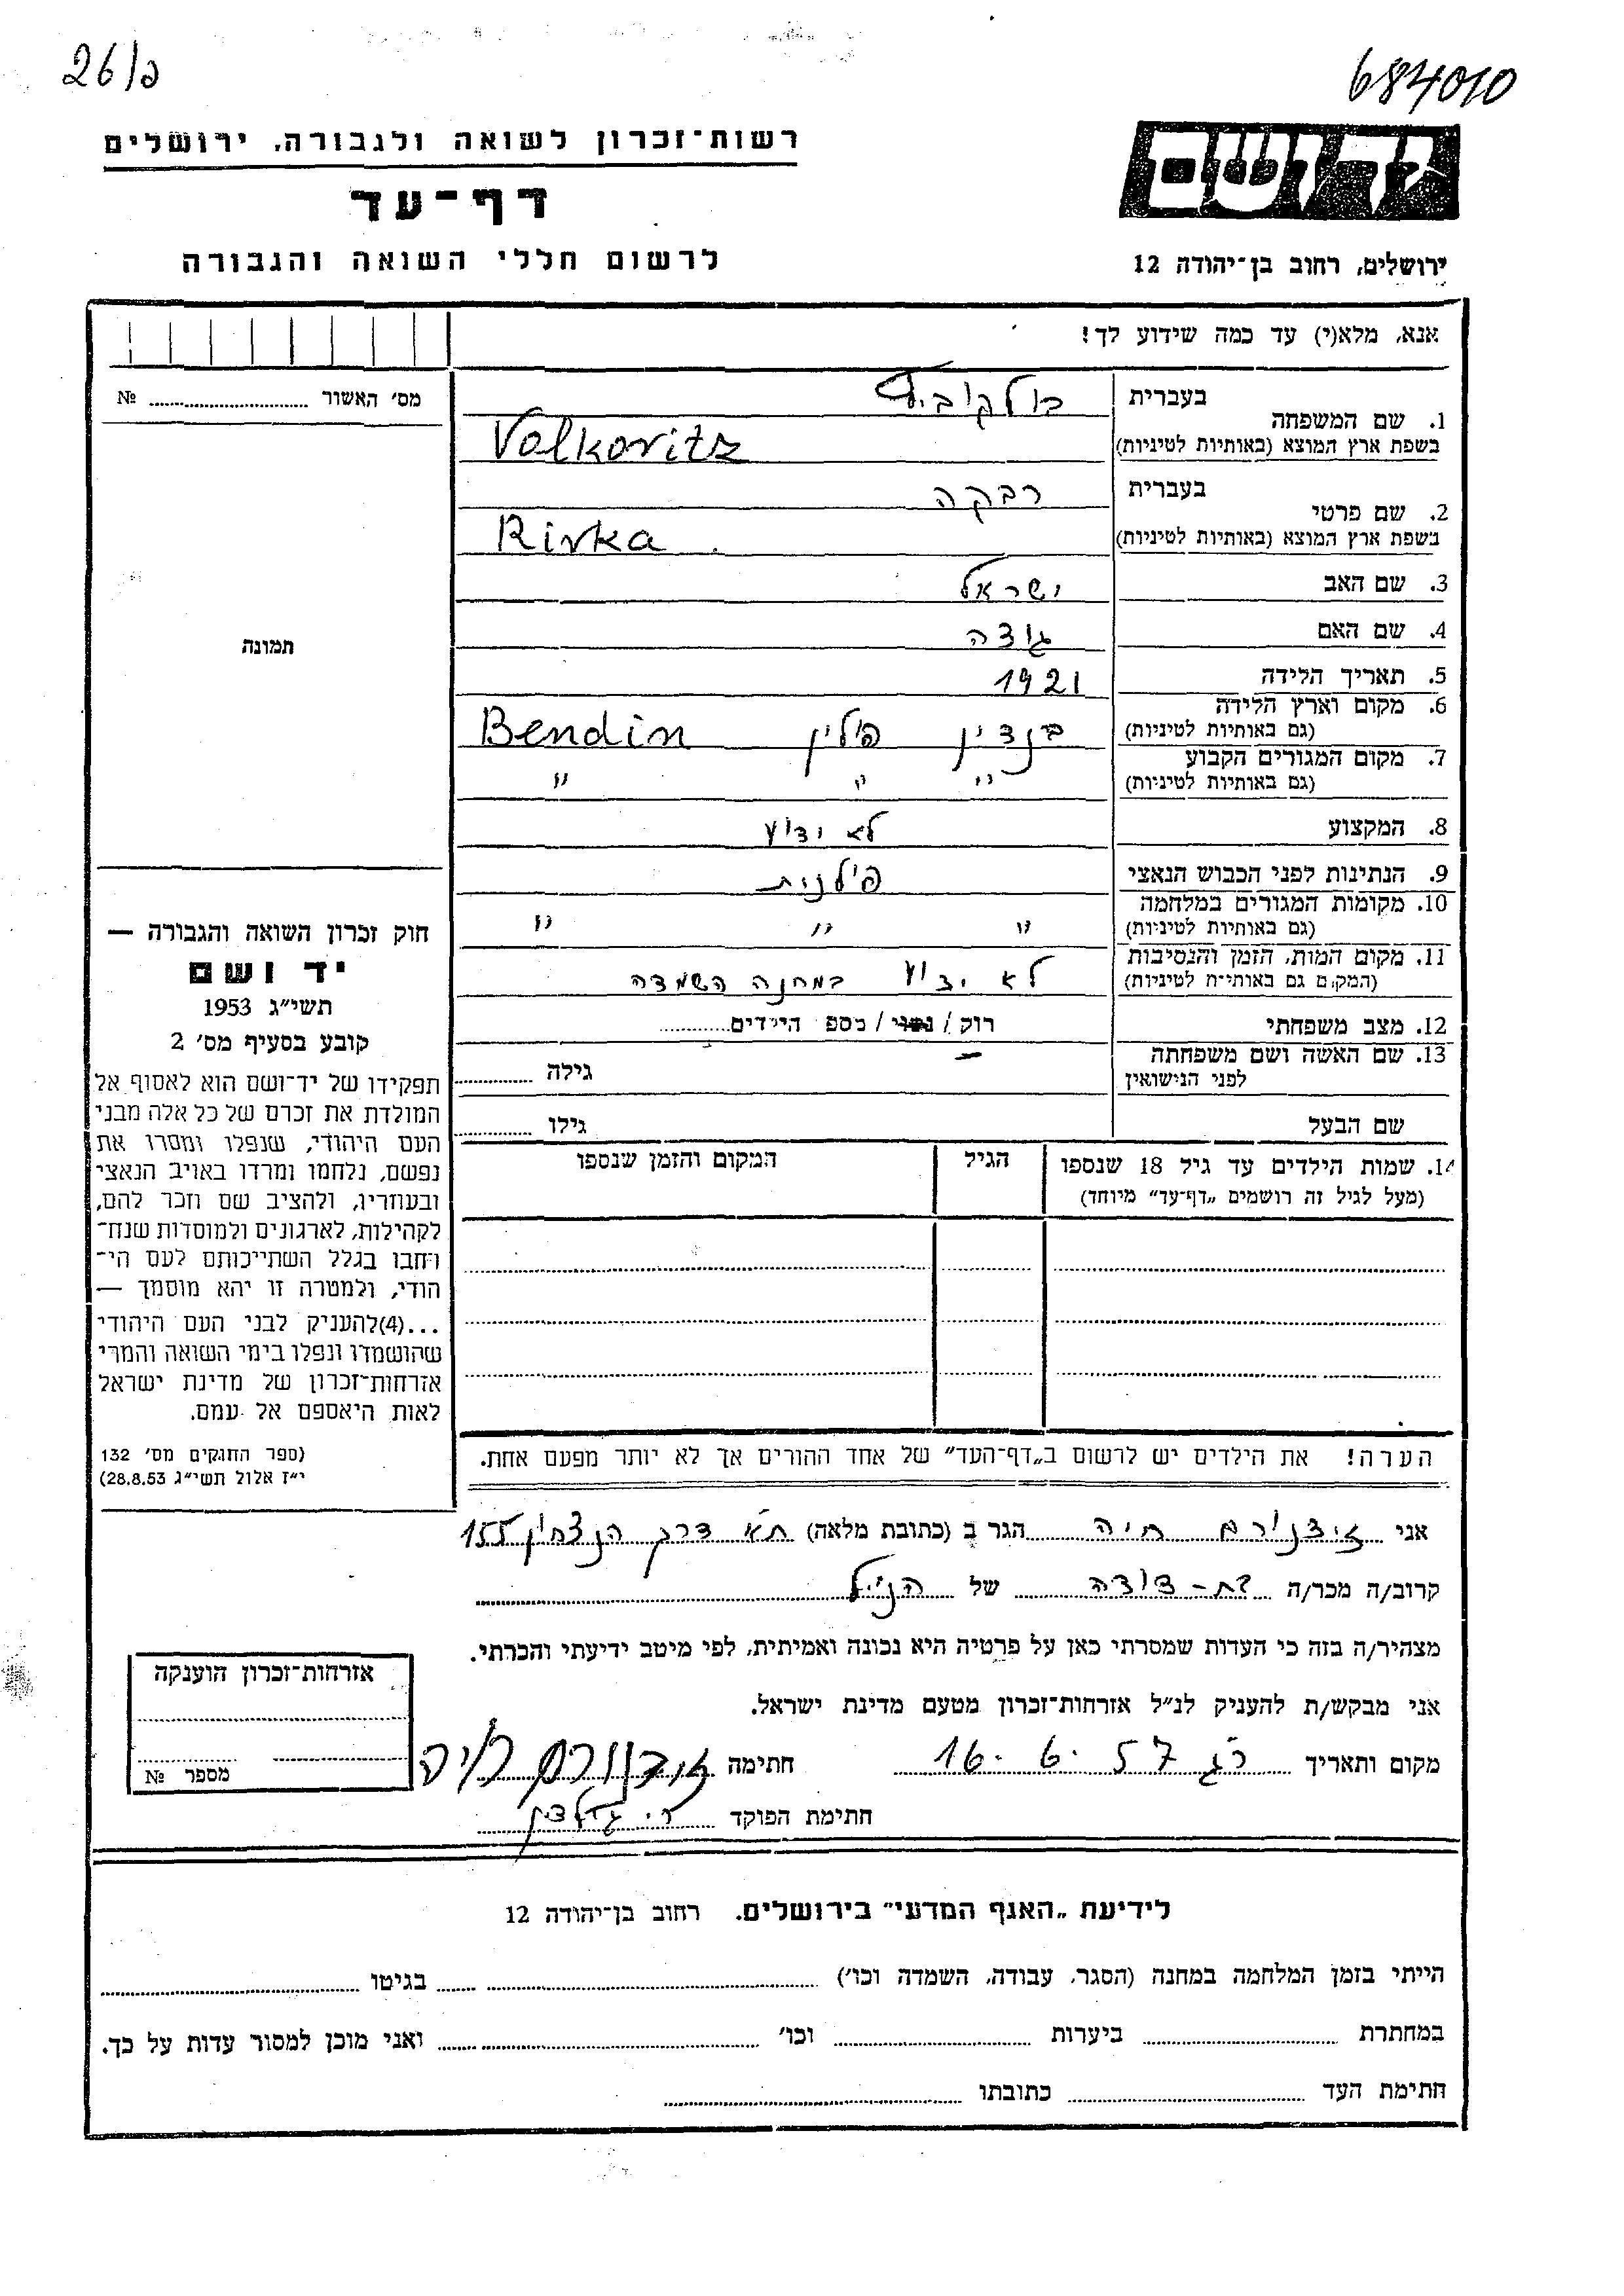 26/כ
684010
רשות־זכרון לשואה ולגבורה, ירושלים
דף־עד
לרשום חללי השואה והגבורה
יד ושם
ירושלים, רחוב בן־יהודה 12
אנא, מלא(י) עד כמה שידוע לך!
מס׳ האשור ........ №
תמונה
1. שם המשפחה
בעברית וולקוביץ
בשפת ארץ המוצא (באותיות לטיניות) Volkovitz
2. שם פרטי
בעברית רבקה
בשפת ארץ המוצא (באותיות לטיניות) Rivka
3. שם האב ישראל
4. שם האם
5. תאריך הלידה 1921
6. מקום וארץ הלידה
(גם באותיות לטיניות) בנדין פולין Bendin
7. מקום המגורים הקבוע
(גם באותיות לטיניות) " " "
8. המקצוע לא ידוע
9. הנתינות לפני הכבוש הנאצי פולנית
10. מקומות המגורים במלחמה
(גם באותיות לטיניות) " " "
11. מקום המות, הזמן והנסיבות
(המקום גם באותיות לטיניות) לא ידוע במחנה השמדה
12. מצב משפחתי רוק / נשוי / מספ הילדים........
13. שם האשה ושם משפחתה
לפני הנישואין — גילה ........
שם הבעל גילו ........
14. שמות הילדים עד גיל 18 שנספו
(מעל לגיל זה רושמים „דף־עד״ מיוחד)
הגיל
המקום והזמן שנספו
הערה! את הילדים יש לרשום ב„דף־העד״ של אחד ההורים אך לא יותר מפעם אחת.
חוק זכרון השואה והגבורה —
יד ושם
תשי״ג 1953
קובע בסעיף מס׳ 2
תפקידו של יד־ושם הוא לאסוף אל
המולדת את זכרם של כל אלה מבני
העם היהודי, שנפלו ומסרו את
נפשם, נלחמו ומרדו באויב הנאצי
ובעוזריו, ולהציב שם וזכר להם,
לקהילות, לארגונים ולמוסדות שנח־
רחבו בגלל השתייכותם לעם הי־
הודי, ולמטרה זו יהא מוסמך —
...(4)להעניק לבני העם היהודי
שהושמדו ונפלו בימי השואה והמרי
אזרחות־זכרון של מדינת ישראל
לאות היאספם אל עמם.
(ספר החוקים מס׳ 132
י״ז אלול תשי״ג 28.8.53)
אני חיה הגר ב (כתובת מלאה) ת״א דרך הנצחון 155
קרוב/ה מכר/ה בת-דודה של הנ״ל
מצהיר/ה בזה כי העדות שמסרתי כאן על פרטיה היא נכונה ואמיתית, לפי מיטב ידיעתי והכרתי.
אני מבקש/ת להעניק לנ״ל אזרחות־זכרון מטעם מדינת ישראל.
מקום ותאריך רג 16. 6. 57 חתימה חיה
חתימת הפוקד
אזרחות־זכרון הוענקה
מספר №
לידיעת „האגף המדעי״ בירושלים, רחוב בן־יהודה 12
הייתי בזמן המלחמה במחנה (הסגר, עבודה, השמדה וכו׳) ........ בגיטו ........
במחתרת ........ ביערות ........ וכו׳ ........ ואני מוכן למסור עדות על כך.
חתימת העד ........ כתובתו ........